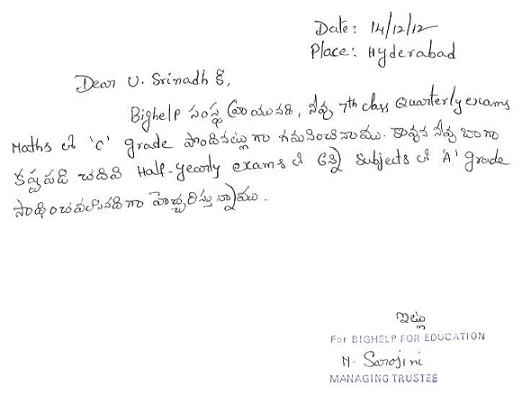 Date: 14/12/12
Place: Hyderabad
Dear U. Srinadh కి,
Bighelp సంస్థ వ్రాయునది, నీవు 7th class Quarterly exams
Maths లో 'C' grade పొందినట్లుగా గమనించినాము. కావున నీవు బాగా
కష్టపడి చదివి Half-yearly exams లో అన్ని subjects లో 'A' grade
సాధించవలసినదిగా హెచ్చరిస్తున్నాము.
ఇట్లు
For BIGHELP FOR EDUCATION
N. Sarojini
MANAGING TRUSTEE